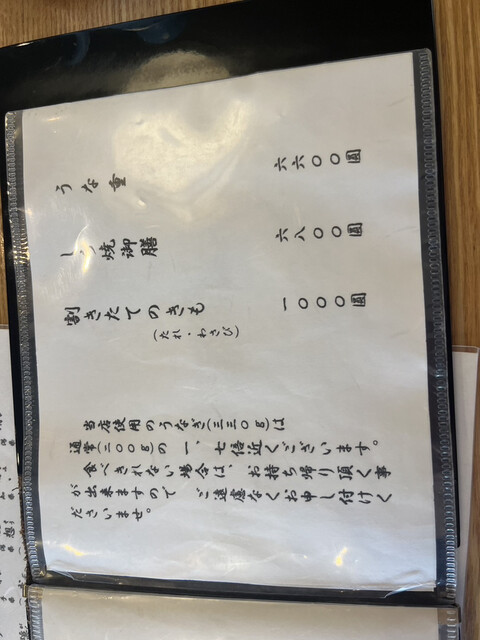 うな重 六六〇〇圓
しら焼御膳 六八〇〇圓
割きたてのきも 一〇〇〇圓
(たれ・わさび)
当店使用のうなぎ(三三〇g)は
通常(二〇〇g)の一、七倍近くございます。
食べきれない場合は、お持ち帰り頂く事
が出来ますので、ご遠慮なくお申し付けく
ださいませ。